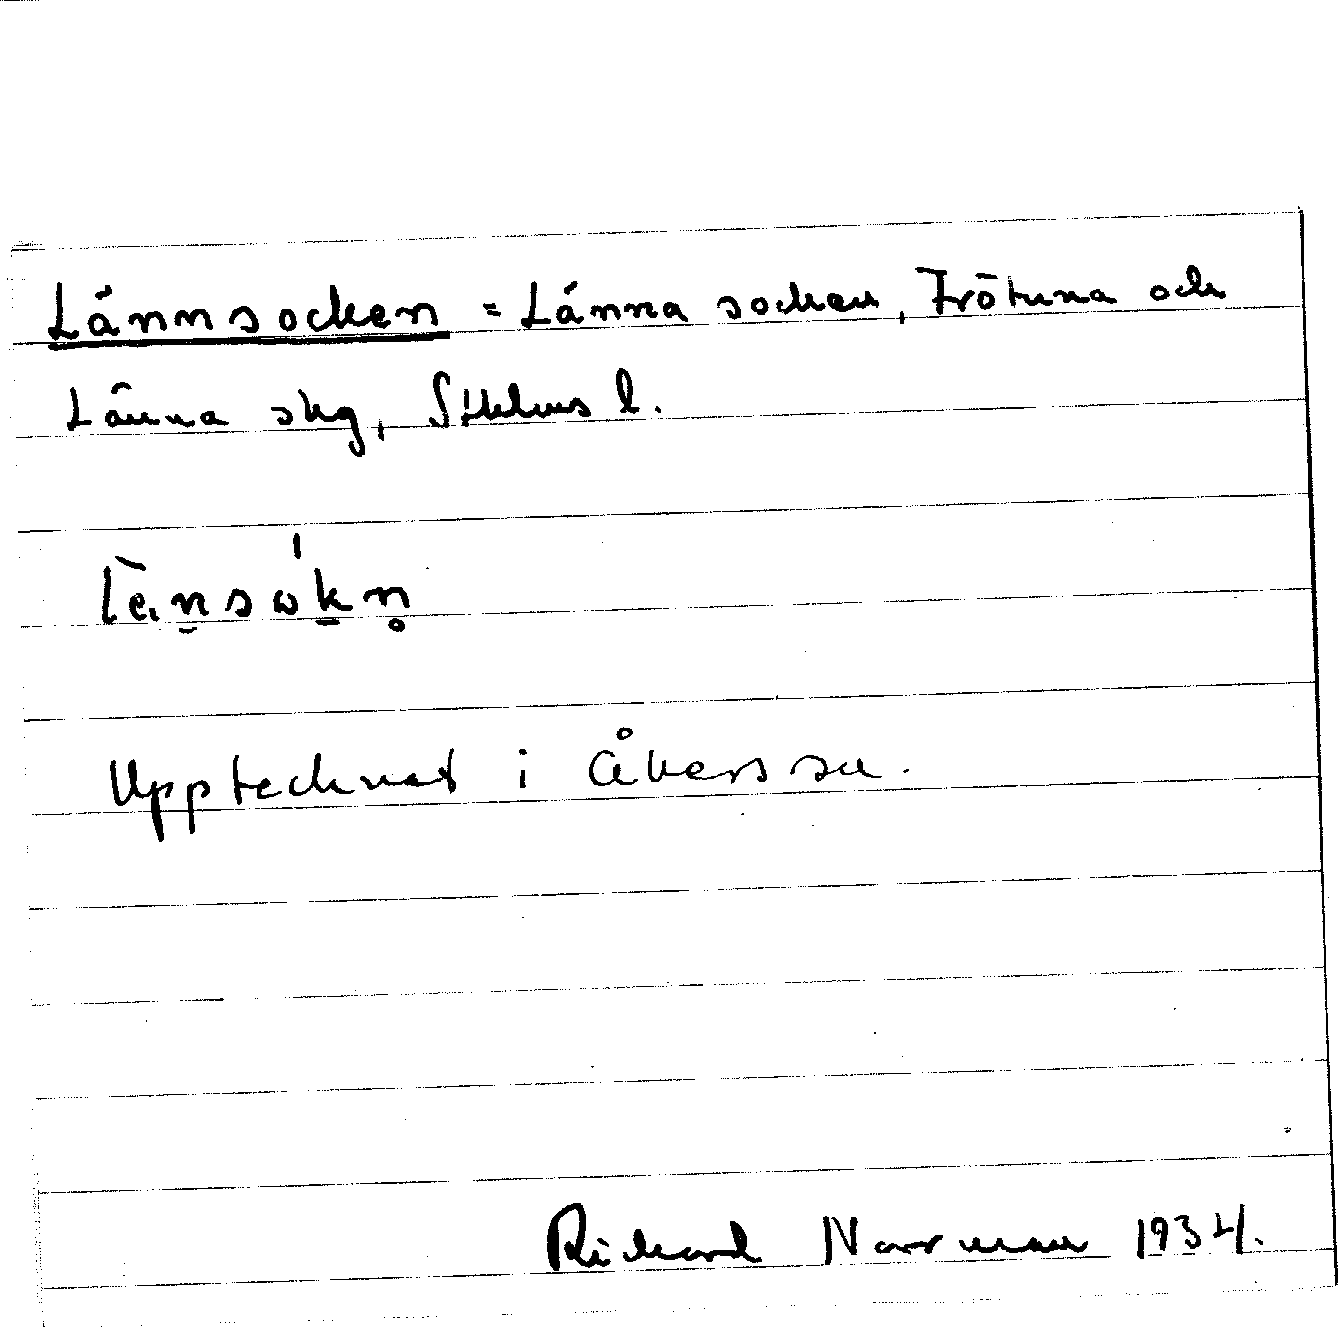 Lännsocken = Länna socken, Frötuna och
Länna skg, Sthlms l.
länsokn
Upptecknat i Åkers sn.
Rickard Norrman 1934.